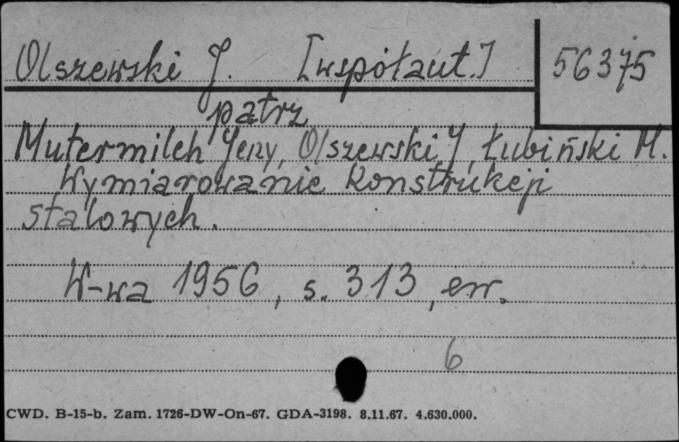 Olszewski J. [współaut.] 56375
patrz
Mutermilch Jerzy, Olszewski J, Łubiński M.
Wymiarowanie konstrukcji
stalowych.
W-wa 1956, s. 313, err.
6
CWD. B-15-b. Zam. 1726-DW-On-67. GDA-3198. 8.11.67. 4.630.000.